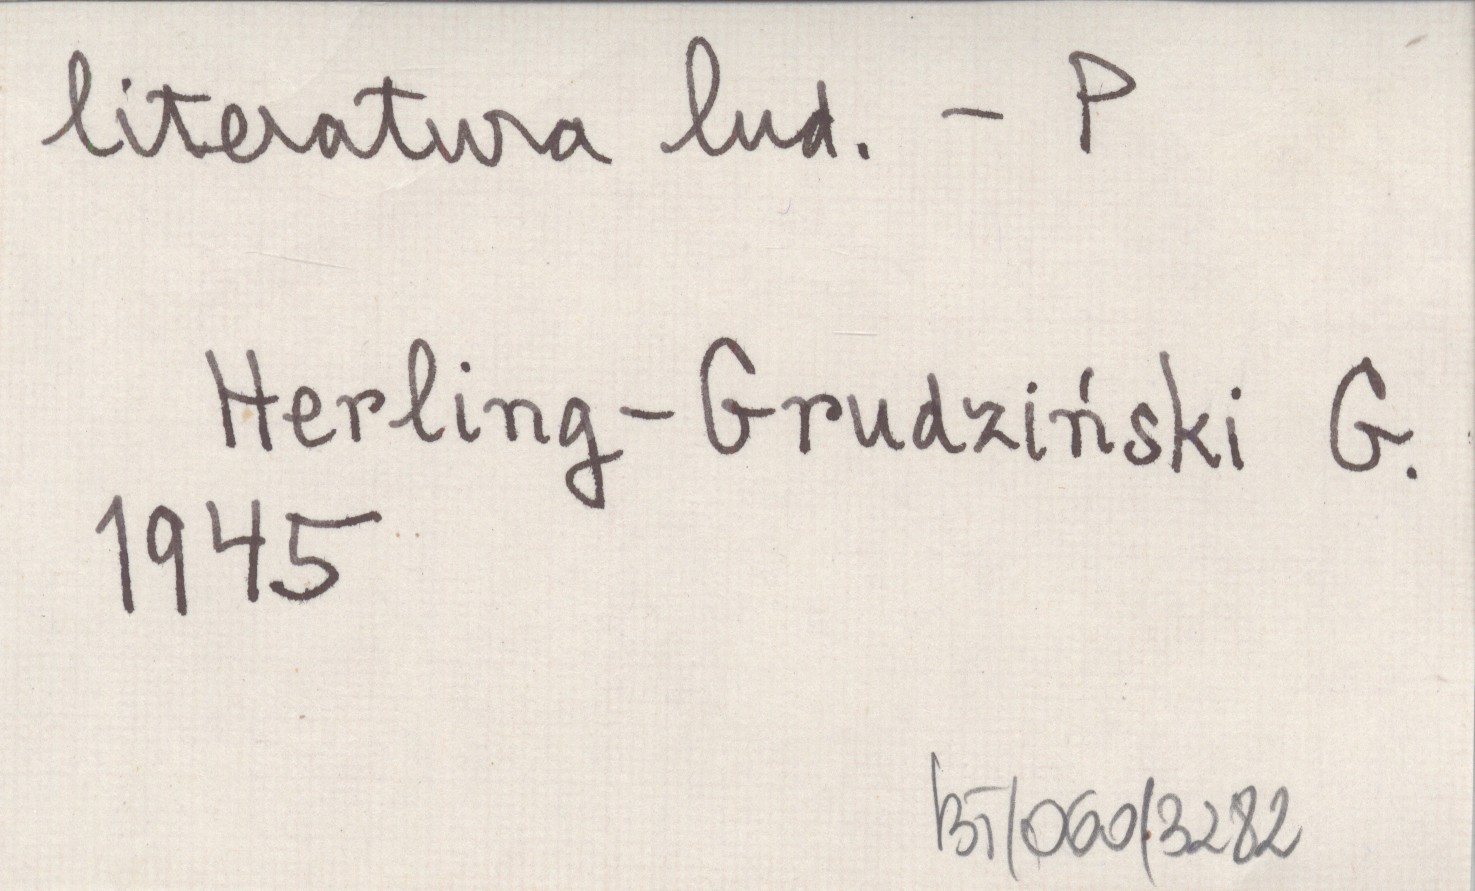 literatura lud. - P
Herling-Grudziński G.
1945
BT/060/3282